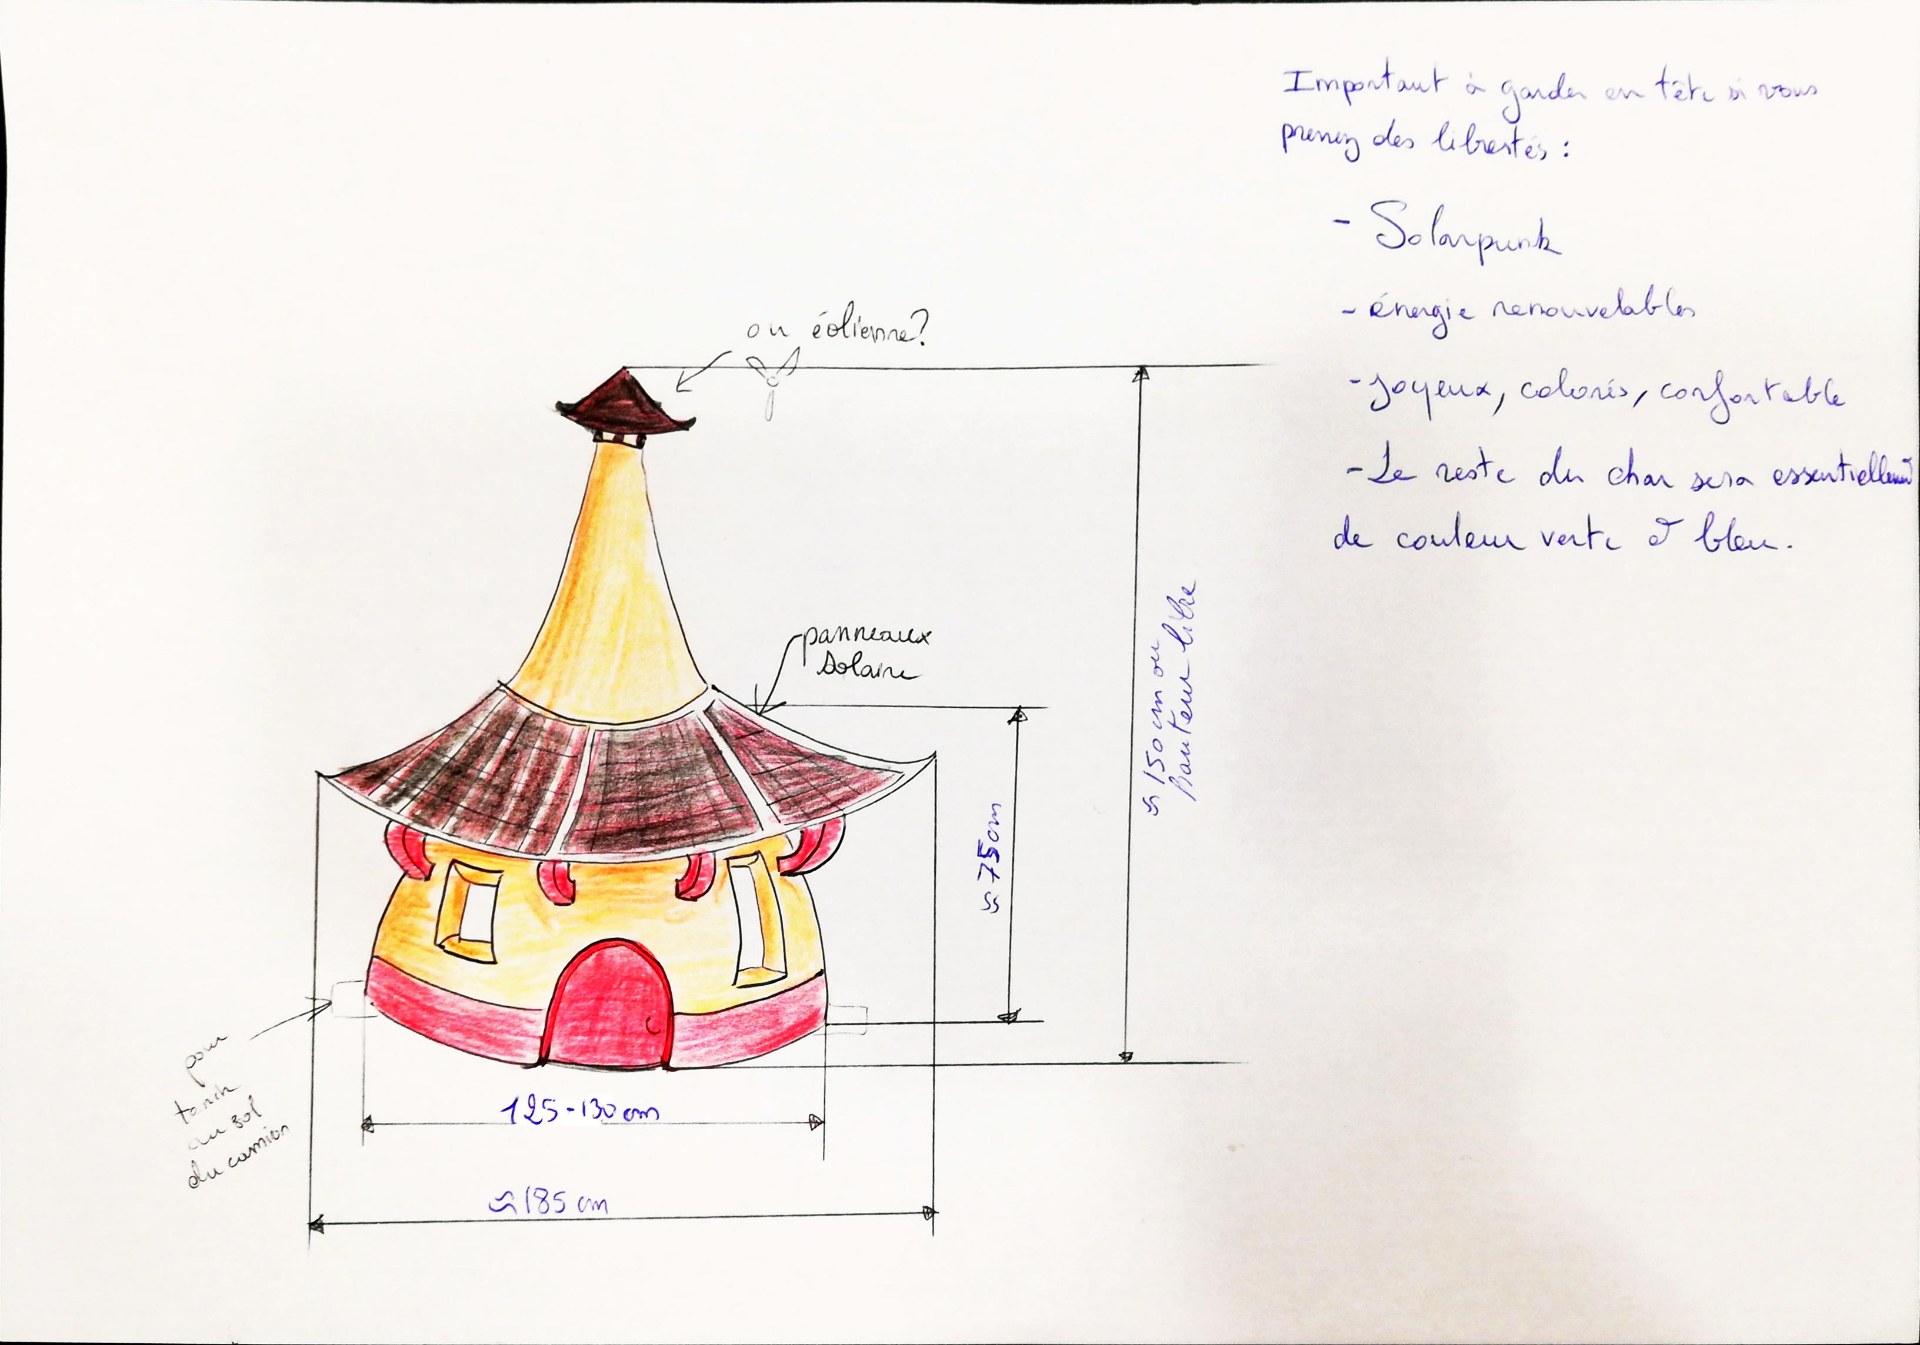 Important à garder en tête si vous
prenez des libertés :
- Solarpunk
- énergie renouvelables
- joyeux, colorés, confortable
- Le reste du char sera essentiellement
de couleur verte & bleu.
ou éolienne?
panneaux
solaire
≈ 150 cm ou
hauteur libre
≈ 75 cm
pour
tenir
au sol
du camion
125-130 cm
≈ 185 cm